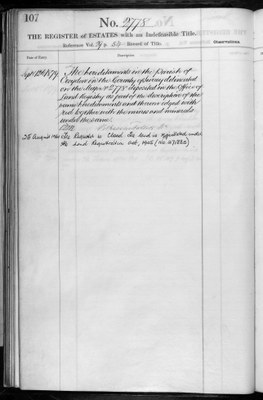 107
No. 2778
THE REGISTER of ESTATES with an Indefeasible Title.
Reference Vol. p. Record of Title.
Date of Entry.
Observations.
Hereditaments in the parish of
in the County of Surrey delineated
on the Map No 2778 deposited in the Office of
Land Registry as part of the description of the
same hereditaments and thereon edged with
red together with the mines and minerals
under the same
The Register is Closed the land is registered under
the Land Registration Act, 1925 (No.